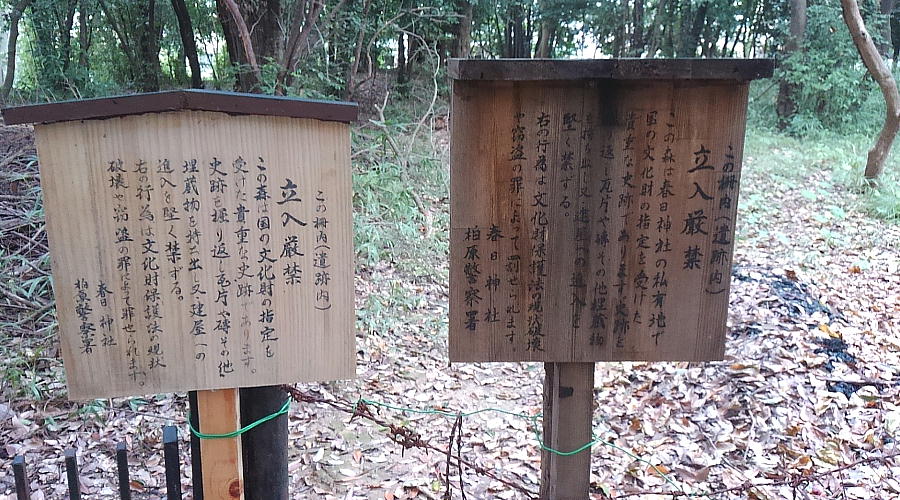 この柵内(遺跡内)
立入厳禁
この森は国の文化財の指定を
受けた貴重な史跡であります。
史跡を掘り返し瓦片や磚その他
埋蔵物を持ち出し又建屋への
進入を堅く禁ずる。
右の行為は文化財保護法の現状
破壊や窃盗の罪によって罪せられます。
春日神社
柏原警察署
この柵内(遺跡内)
立入厳禁
この森は春日神社の私有地で
国の文化財の指定を受けた
貴重な史跡であります史跡を
返し瓦片や磚その他埋蔵物
を持ち出し又建屋への進入を
堅く禁ずる。
右の行為は文化財保護法の現状破壊
や窃盗の罪によって罰せられます。
春日神社
柏原警察署